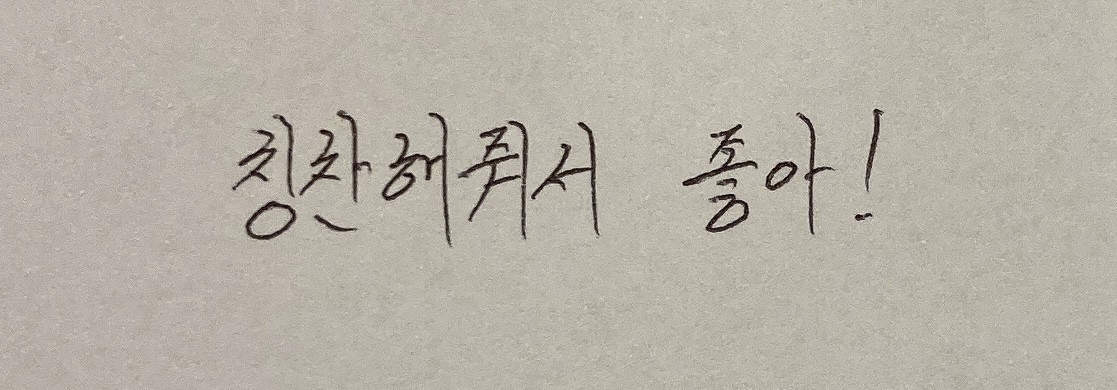 칭찬해줘서 좋아!